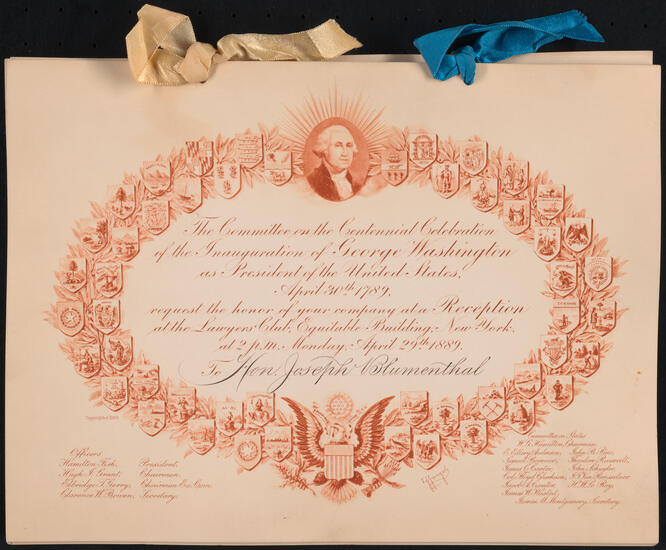 The Committee on the Centennial Celebration
of the Inauguration of George Washington
as President of the United States,
April 30th 1789,
request the honor of your company at a Reception
at the Lawyers' Club, Equitable Building, New York,
at 2 p.m. Monday, April 29th 1889.
To Hon. Joseph Blumenthal
Officers
Hamilton Fish, President.
Hugh J. Grant, Chairman.
Elbridge T. Gerry, Chairman Ex. Com.
Clarence W. Bowen, Secretary.
Committee on States
W. G. Hamilton, Chairman.
C. Ellery Anderson, John B. Pine,
James C. Carter, John Schuyler,
Jacob A. Cantor, H. W. Le Roy,
James M. Montgomery, Secretary.